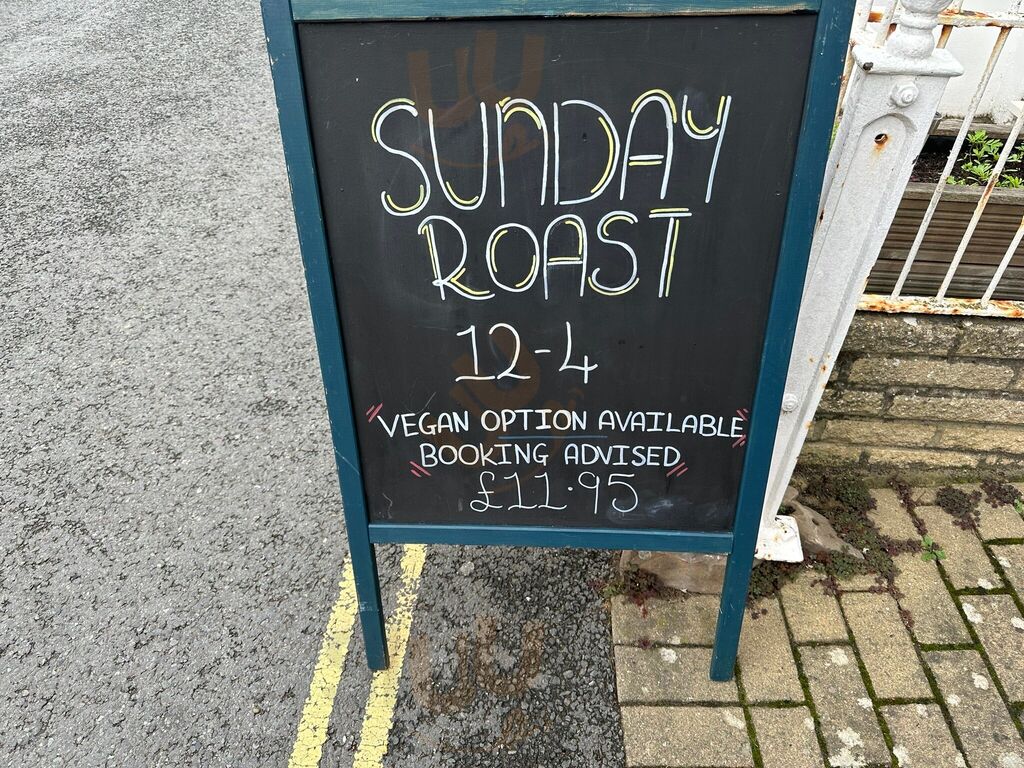 SUNDAY
ROAST
12-4
VEGAN OPTION AVAILABLE
BOOKING ADVISED
£11.95